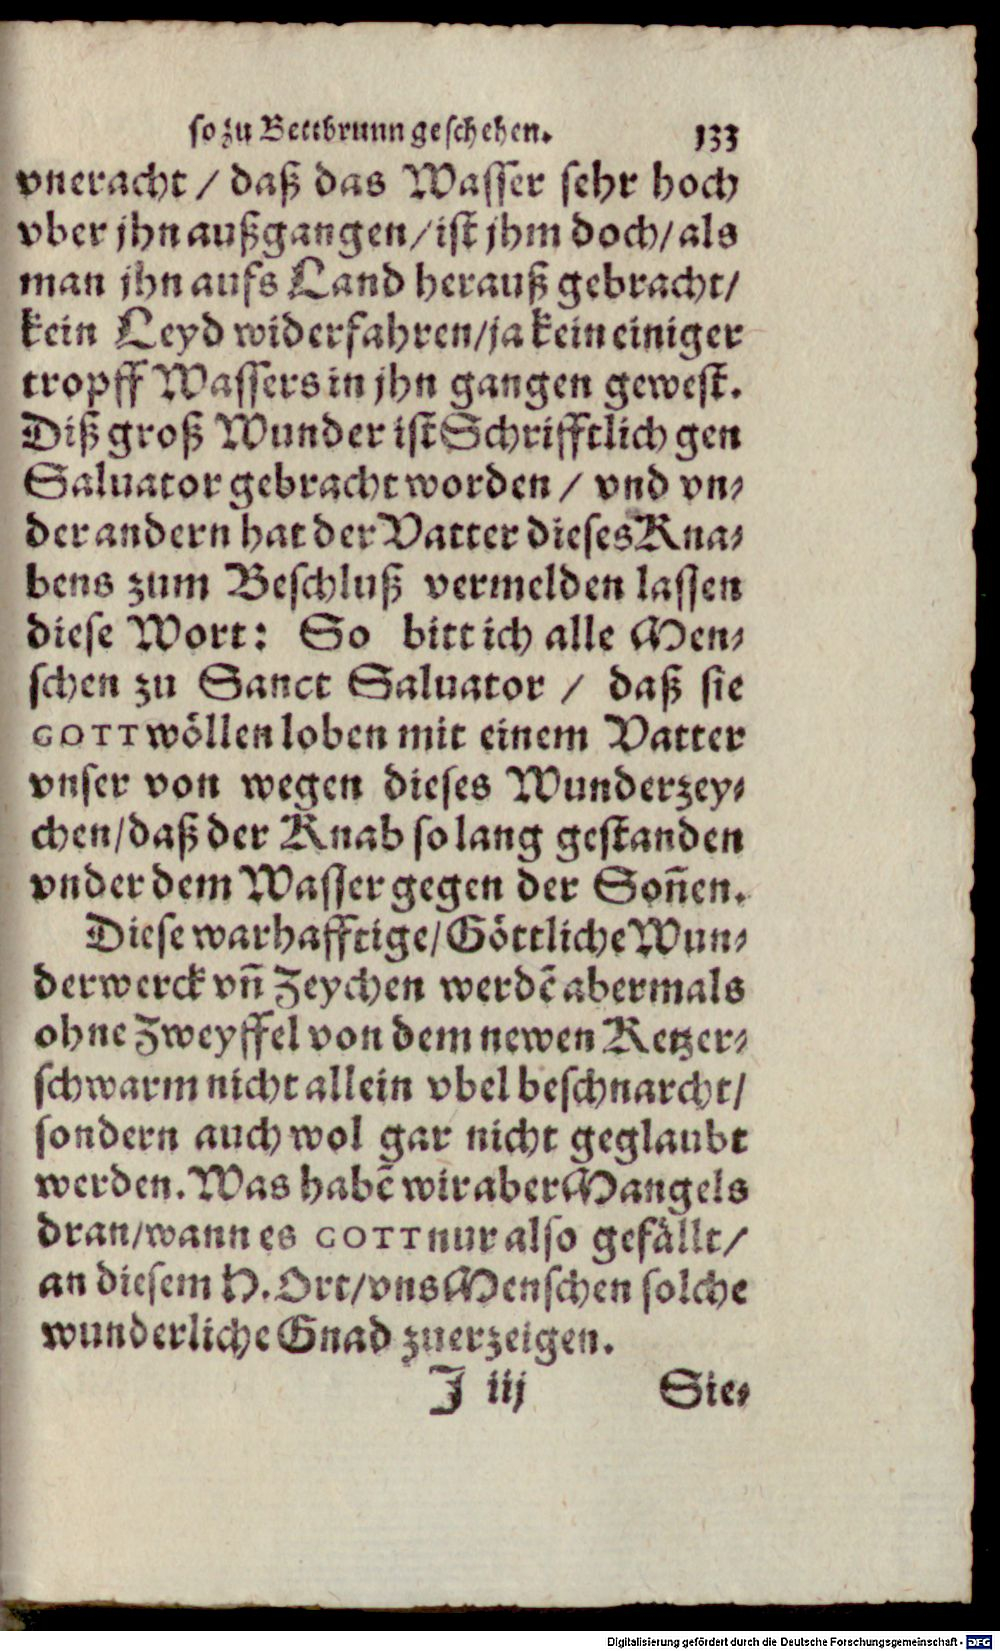 so zu Bettbrunn geschehen. 133
vneracht / daß das Wasser sehr hoch
vber jhn außgangen / ist jhm doch / als
man jhn aufs Land herauß gebracht /
kein Leyd widerfahren / ja kein einiger
tropff Wassers in jhn gangen gewest.
Diß groß Wunder ist Schrifftlich gen
Saluator gebracht worden / vnd vn-
der andern hat der Vatter dieses Kna-
bens zum Beschluß vermelden lassen
diese Wort: So bitt ich alle Men-
schen zu Sanct Saluator / daß sie
GOTT wöllen loben mit einem Vatter
vnser von wegen dieses Wunderzey-
chen / daß der Knab so lang gestanden
vnder dem Wasser gegen der Soñen.
Diese warhafftige / Göttliche Wun-
derwerck vñ Zeychen werdē abermals
ohne Zweyffel von dem newen Ketzer-
schwarm nicht allein vbel beschnarcht /
sondern auch wol gar nicht geglaubt
werden. Was habē wir aber Mangels
dran / wann es GOTT nur also gefällt /
an diesem H. Ort / vns Menschen solche
wunderliche Gnad zuerzeigen.
J iij Sie-
Digitalisierung gefördert durch die Deutsche Forschungsgemeinschaft - DFG